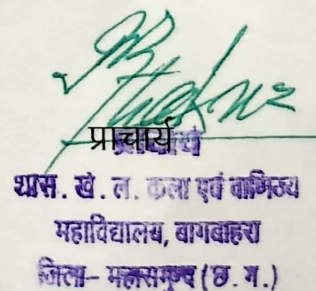 प्राचार्य
प्राचार्य
शास. खं. ल. कला एवं वाणिज्य
महाविद्यालय, बागबाहरा
जिला- महासमुन्द (छ. ग.)